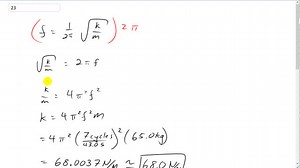 23
(f = 1/2π √(k/m)) 2π
√(k/m) = 2πf
k/m = 4π²f²
k = 4π²f²m
= 4π²(7cycles/43.0s)²(65.0kg)
= 68.0037 N/m ≈ 68.0 N/